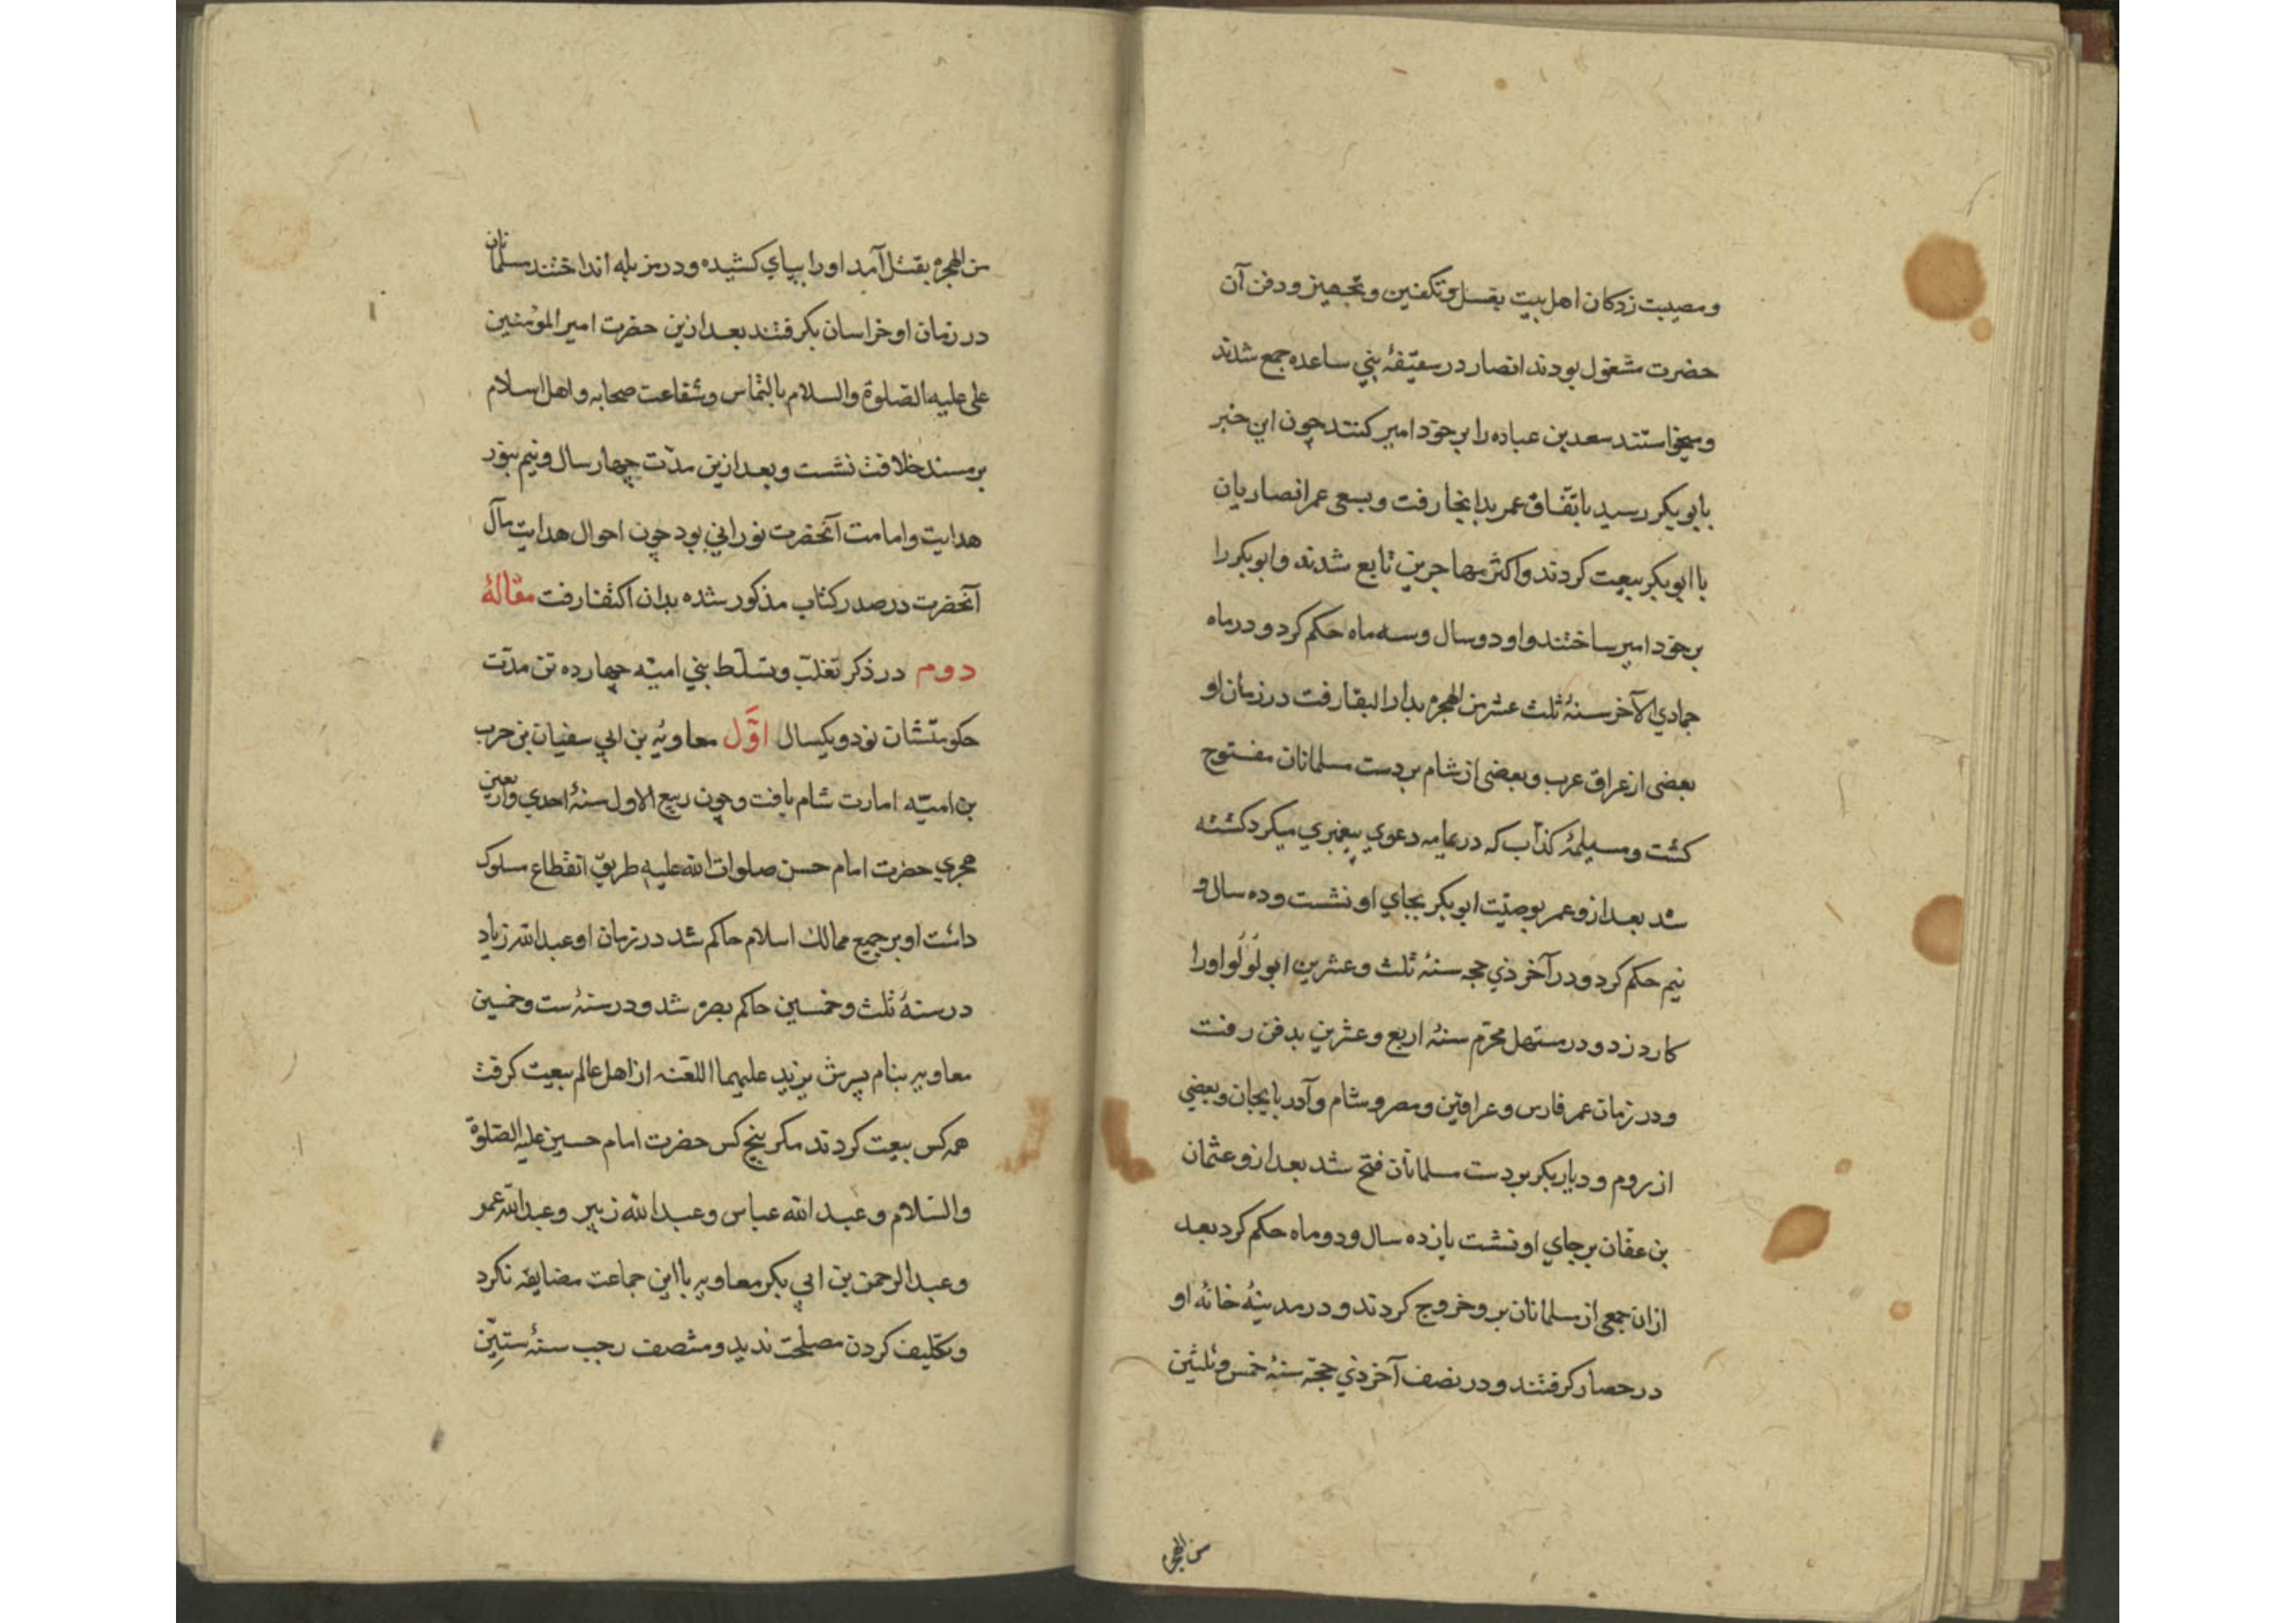 ومصیبت زدکان اهل بیت بغسل وتکفین وتجهیز ودفن آن
حضرت مشغول بودند انصار در سقیفهٔ بني ساعده جمع شدند
ومیخواستند سعد بن عباده را بر خود امیر کنند چون این خبر
بابو بکر رسید باتّفاق عمر بدانجا رفت وبسعی عمر انصاریان
با ابو بکر بیعت کردند واکثر مهاجرین تابع شدند وابو بکر را
بر خود امیر ساختند واو دو سال وسه ماه حکم کرد و در ماه
جمادي الآخر سنهٔ ثلث عشر من الهجرة بدار البقا رفت در زمان او
بعضی از عراق عرب وبعضی از شام بر دست مسلمانان مفتوح
کشت ومسیلمهٔ کذّاب که در یمامه دعوي پیغمبري میکرد کشته
شد بعد ازو عمر بوصیّت ابو بکر بجاي او نشست وده سال و
نیم حکم کرد ودر آخر ذي حجه سنهٔ ثلث وعشرین ابو لُولُو او را
کارد زد و در مستهل محرّم سنهٔ اربع وعشرین بدفن رفت
و در زمان عمر فارس وعراقین ومصر وشام وآدربایجان وبعضي
از روم و دیاربکر بر دست مسلمانان فتح شد بعد ازو عثمان
بن عفّان بر جاي او نشست یازده سال ودو ماه حکم کرد بعد
ازان جمعی از مسلمانان برو خروج کردند و در مدینهٔ خانهٔ او
در حصار کرفتند و در نصف آخر ذي حجّه سنهٔ خمس وثلثین
من الهجرة
من الهجرة بقتل آمد او را بپاي کشیده ودر مزبله انداختند مسلمانان
در زمان او خراسان بکرفتند بعد ازین حضرت امیر المؤمنین
علی علیه الصّلوة والسلام بالتماس وشفاعت صحابه واهل اسلام
بر مسند خلافت نشست وبعد ازین مدّت چهار سال ونیم بنور
هدایت وامامت آنحضرت نوراني بود چون احوال هدایت مآل
آنحضرت در صدر کتاب مذکور شده بدان اکتفا رفت مقالهٔ
دوم در ذکر تغلّب وتسلّط بني امیّه چهارده تن مدّت
حکومتشان نود ویکسال اوّل معاویة بن ابي سفیان بن حرب
بن امیّه امارت شام یافت وچون ربیع الاول سنهٔ احدي واربعین
هجري حضرت امام حسن صلوات الله علیه طریق انقطاع سلوک
داشت او بر جمیع ممالک اسلام حاکم شد در زمان او عبد الله زیاد
در سنهٔ ثلث وخمسین حاکم بصره شد ودر سنهٔ ست وخمسین
معاویه بنام پسرش یزید علیهما اللعنه از اهل عالم بیعت کرفت
همه کس بیعت کردند مکر پنج کس حضرت امام حسین علیه الصّلوة
والسّلام وعبد الله عباس وعبد الله زبیر وعبد الله عمر
وعبد الرحمن بن ابي بکر معاویه با این جماعت مضایقه نکرد
وتکلیف کردن مصلحت ندید ومنتصف رجب سنهٔ ستّین